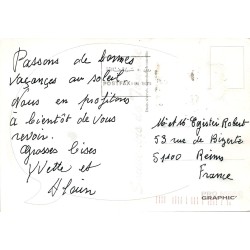 Passons de bonnes
vacances au soleil
Nous en profitons
à bientôt de vous
revoir.
grosses bises
Yvette et
Alain
Mr et Me Robert
53 rue de Bizerte
51100 Reims
France
GRAPHIC